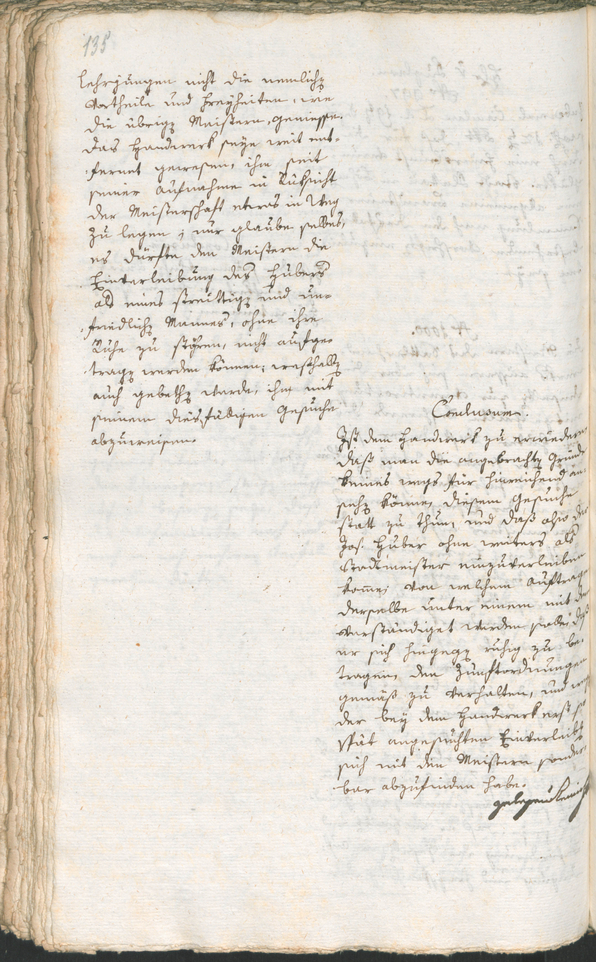 135
Lehrjungen nicht die nemliche
Vortheile und Freyheiten, wie
die übrige Meistern, geniesse.
Das Handwerk seye weit ent-
fernt gewesen, ihm seit
seiner Aufnahme in Rüksicht
der Meisterschaft etwas in Weg
zu legen; nur glaube selbes,
es dürfte den Meistern die
Einverleibung des Hubers
als eines streittig und un-
friedlich Mannes, ohne ihre
Ruhe zu stören, nicht aufge-
tragen werden können; weshalb
auch gebethen werde, ihn mit
seinem diesfäligen Gesuche
abzuweisen.
Conclusum.
Ist dem Handwerk zu erwiedern
daß man die angebrachte Gründe
keines wegs für hinreichend an-
sehen könne, diesem Gesuche
statt zu thun, und daß also der
Jos. Huber ohne weiters als
Stadtmeister einzuverleiben
komme; von welchem Auftrage
derselbe unter einem mit dem
verständiget werden solle, daß
er sich hingegen ruhig zu be-
tragen, den Zunftordnungen
gemäß zu verhalten, und
der bey dem Handwerk erst so
spät angesuchten Einverleibung
sich mit den Meistern sonder-
bar abzufinden habe.